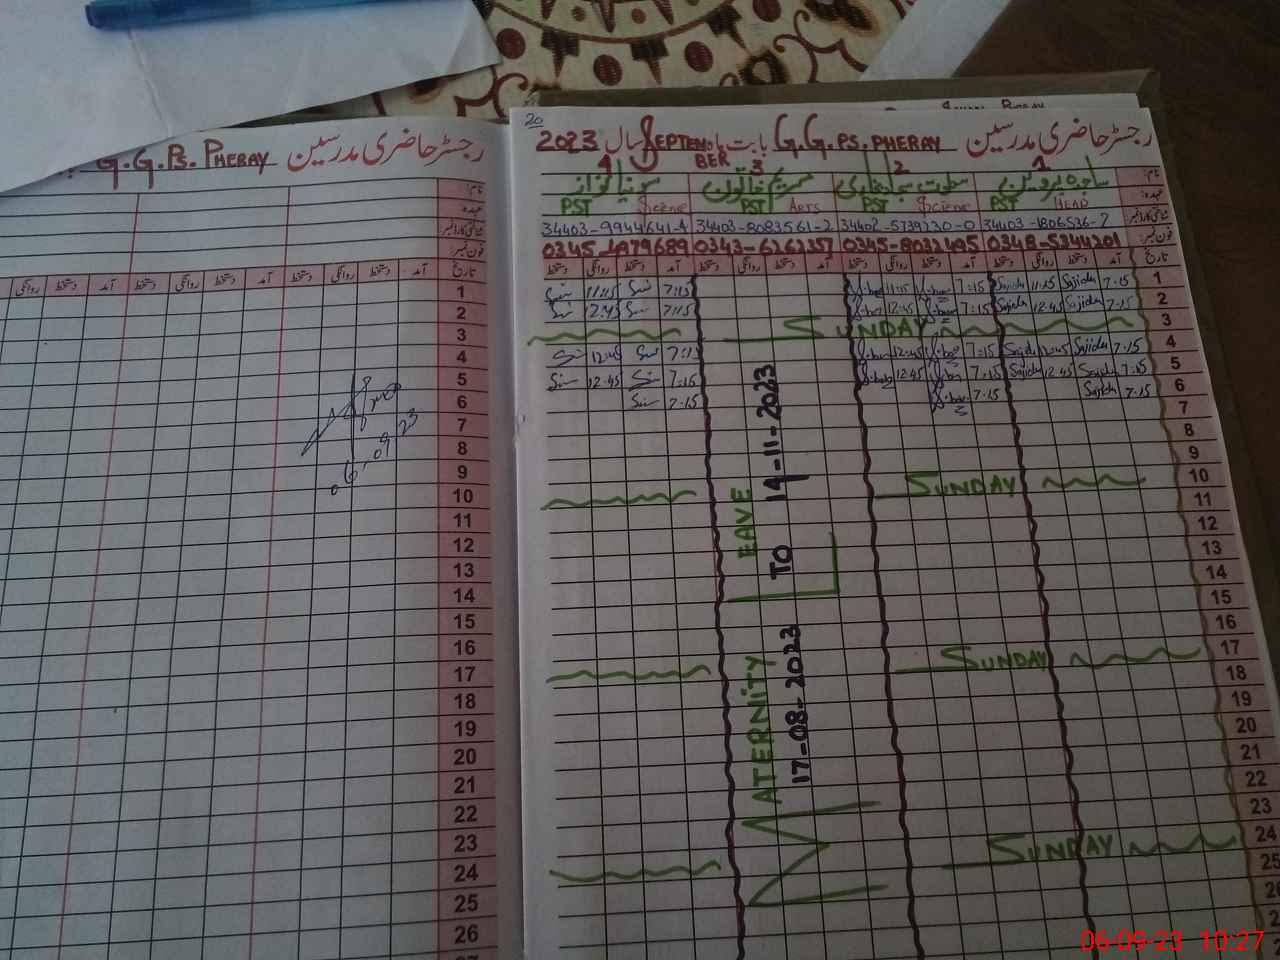 G.G.PS. PHERAY رجسٹر حاضری مدرسین
نام:
عہدہ:
شناختی کارڈ نمبر:
فون نمبر:
تاریخ آمد دستخط روانگی دستخط آمد دستخط روانگی دستخط آمد دستخط روانگی
1
2
3
4
5
6
7
8
9
10
11
12
13
14
15
16
17
18
19
20
21
22
23
24
25
26
06.09.23
20
رجسٹر حاضری مدرسین G.G.PS. PHERAY بابت ماہ SEPTEMBER سال 2023
1 2 3 4
نام: ساجدہ پروین
عہدہ: HEAD PST Science PST Aers PST Sciene PST
شناختی کارڈ نمبر: 34403-1806536-2 34402-5739230-0 34403-8083561-2 34403-9944641-4
فون نمبر: 0348-5344201 0345-8032495 0343-6262357 0345-4979689
تاریخ آمد دستخط روانگی دستخط آمد دستخط روانگی دستخط آمد دستخط روانگی دستخط آمد دستخط روانگی دستخط
1 7:15 Sajida 11:15 Sajida 7:15 11:15 7:15 11:15
2 7:15 Sajida 12:45 Sajida 7:15 12:45 7:15 12:45
3 SUNDAY
4 7:15 Sajida 12:45 Sajida 7:15 12:45 7:15 12:45
5 7:15 Sajida 12:45 Sajida 7:15 12:45 7:15 12:45
6 7:15 Sajida 7:15 7:15
7
8
9
10 SUNDAY
11
12
13
14
15
16
17 SUNDAY
18
19
20
21
22
23
24 SUNDAY
25
MATERNITY LEAVE
17-08-2023 TO 14-11-2023
06-09-23 10:27